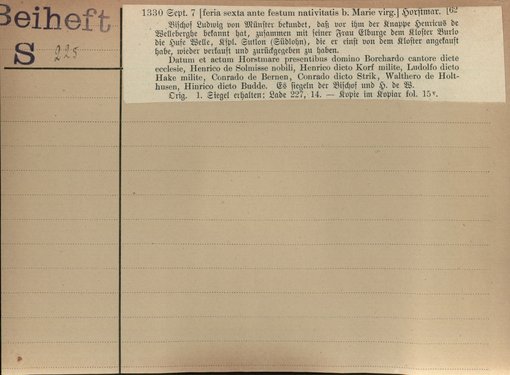 Beiheft
S 225
1330 Sept. 7 [feria sexta ante festum nativitatis b. Marie virg.] Horstmar. [62
Bischof Ludwig von Münster bekundet, daß vor ihm der Knappe Henricus de
Welleberghe bekannt hat, zusammen mit seiner Frau Elburge dem Kloster Burlo
die Hufe Welle, Kspl. Sutlon (Südlohn), die er einst von dem Kloster angekauft
habe, wieder verkauft und zurückgegeben zu haben.
Datum et actum Horstmare presentibus domino Borchardo cantore dicte
ecclesie, Henrico de Solmisse nobili, Henrico dicto Korf milite, Ludolfo dicto
Hake milite, Conrado de Bernen, Conrado dicto Strik, Walthero de Holt-
husen, Hinrico dicto Budde. Es siegeln der Bischof und H. de W.
Orig. 1. Siegel erhalten: Lade 227, 14. — Kopie im Kopiar fol. 15v.